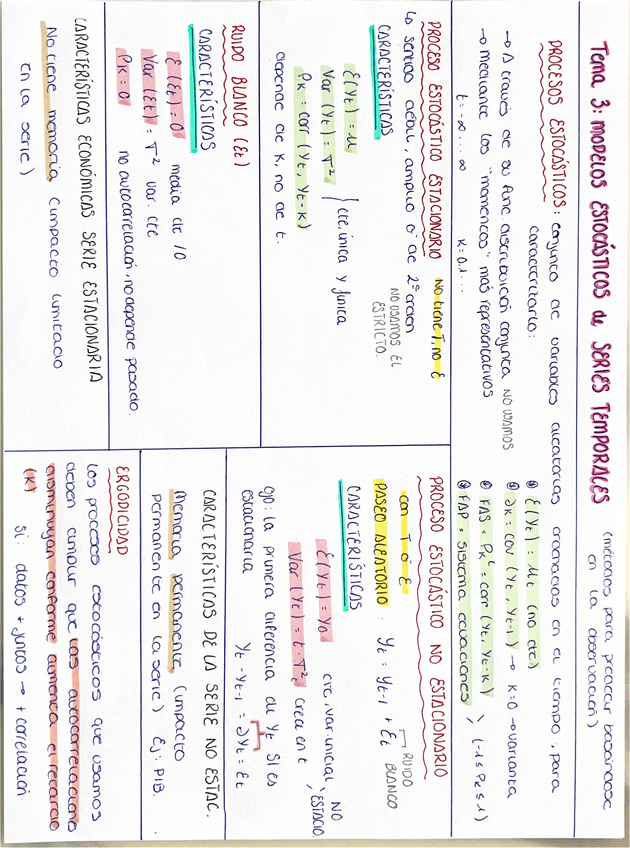 Tema 3: MODELOS ESTOCÁSTICOS de SERIES TEMPORALES (métodos para predecir basándose
en la observación)
PROCESOS ESTOCÁSTICOS: conjunto de variables aleatorias ordenadas en el tiempo, para
caracterizarlo:
→ A través de su func. distribución conjunta NO USAMOS
→ Mediante los "momentos" más representativos
t = -∞ ... ∞ K = 0, 1 ...
E(Yt) = Mt (no cte)
∂K = cov (Yt, Yt-1) → K=0 → varianza
FAS = PK = corr (Yt, Yt-K) (-1 ≤ PK ≤ 1)
FAP = sistema ecuaciones
PROCESO ESTOCÁSTICO ESTACIONARIO No tiene T, no E
lo sentido débil, amplio ó de 2º orden
NO USAMOS EL
ESTRICTO.
CARACTERÍSTICAS
E(Yt) = M
Var (Yt) = T² cte, única y finita
PK = corr (Yt, Yt-K)
depende de K, no de t.
RUIDO BLANCO (Et)
CARACTERÍSTICAS
E(Et) = 0 media de 10
Var (Et) = T² var. cte
PK = 0 no autocorrelación, no depende pasado.
CARACTERÍSTICAS ECONÓMICAS SERIE ESTACIONARIA
No tiene memoria (impacto limitado
en la serie)
PROCESO ESTOCÁSTICO NO ESTACIONARIO
con T ó E
RUIDO
BLANCO
PASEO ALEATORIO: Yt = Yt-1 + Et
CARACTERÍSTICAS
E(Yt) = Y0 cte, var. inicial, NO
ESTACIO.
Var (Yt) = t · T² crece en t
ojo: la primera diferencia de Yt SI es
estacionaria Yt - Yt-1 = ∂Yt = Et
CARACTERÍSTICAS DE LA SERIE NO ESTAC.
Memoria permanente (impacto
permanente en la serie) Ej: PIB.
ERGODICIDAD
Los procesos estocásticos que usamos
deben cumplir que las autocorrelaciones
disminuyan conforme aumenta el retardo
(K) Si: datos + juntos → + correlación